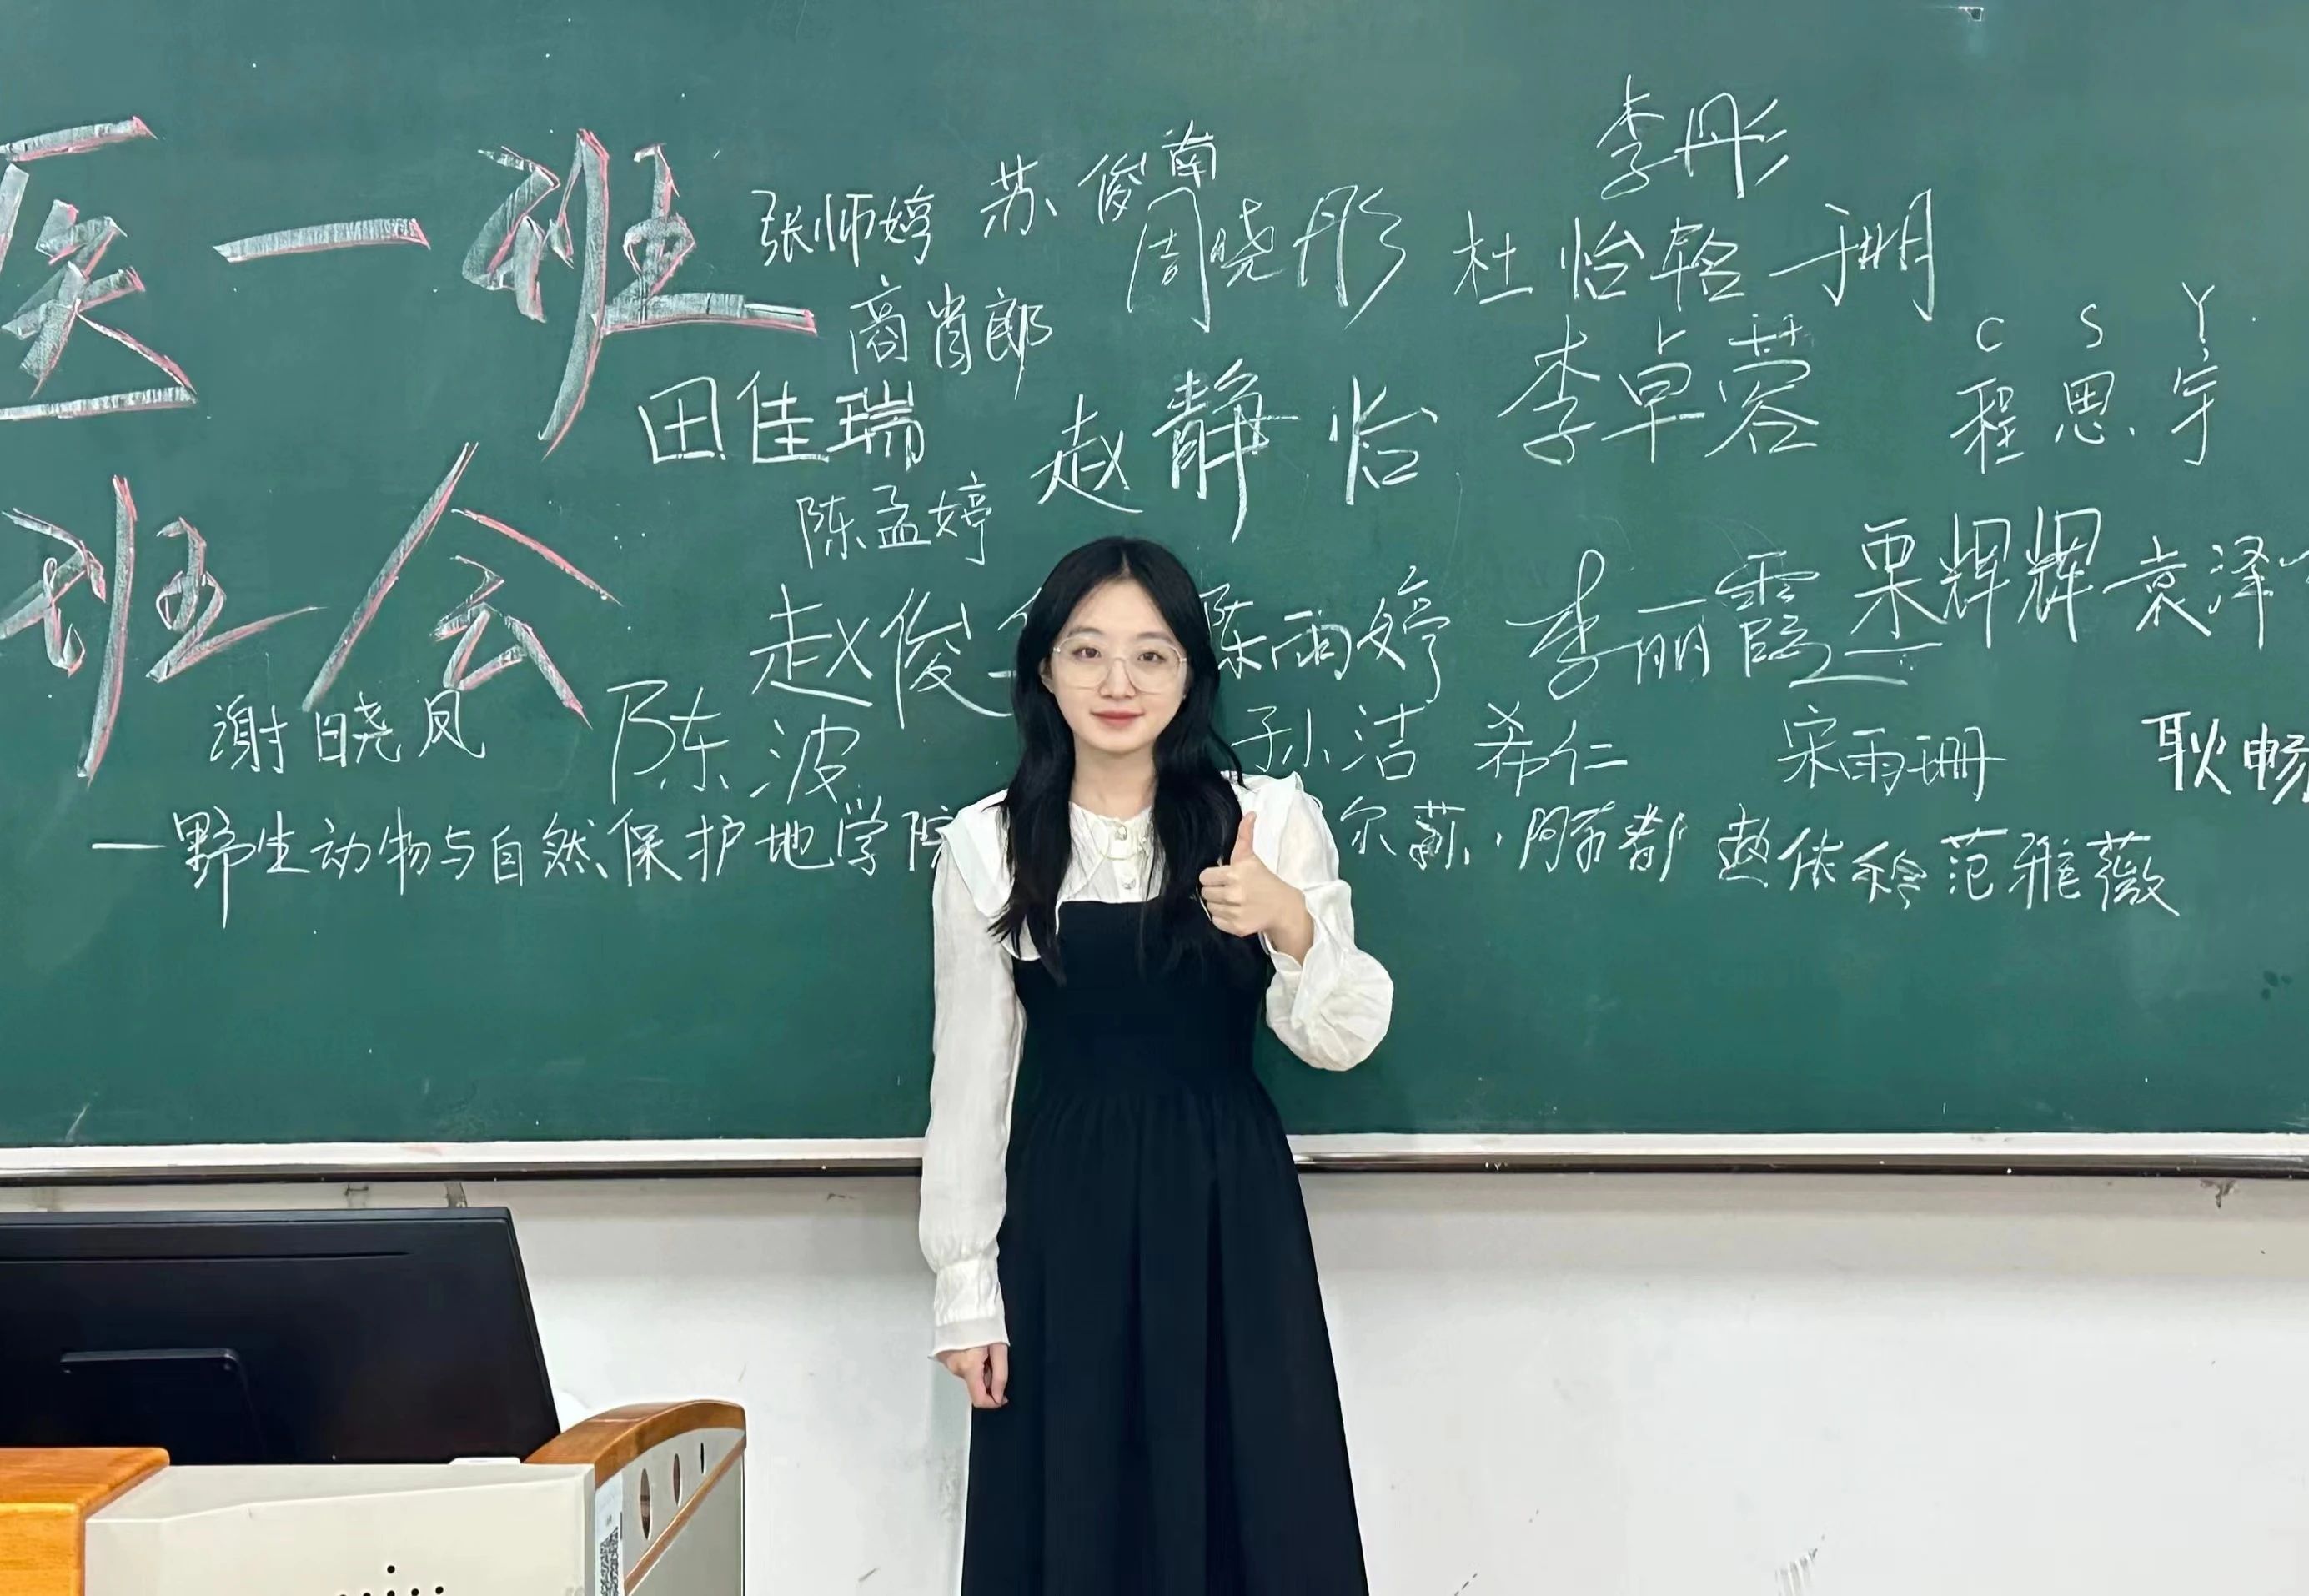 医一班
班会
李彤
张师婷 苏俊南
周晓彤 杜怡晗 于珊
商肖郎
C S Y
田佳瑞 赵静怡 李卓蓉 程思宇
陈孟婷
赵俊 陈雨婷 李丽霞 栗辉辉 袁泽
谢晓凤 陈波 孙洁 希仁 宋雨珊 耿畅
—野生动物与自然保护地学院 尔 赵依 范雅薇